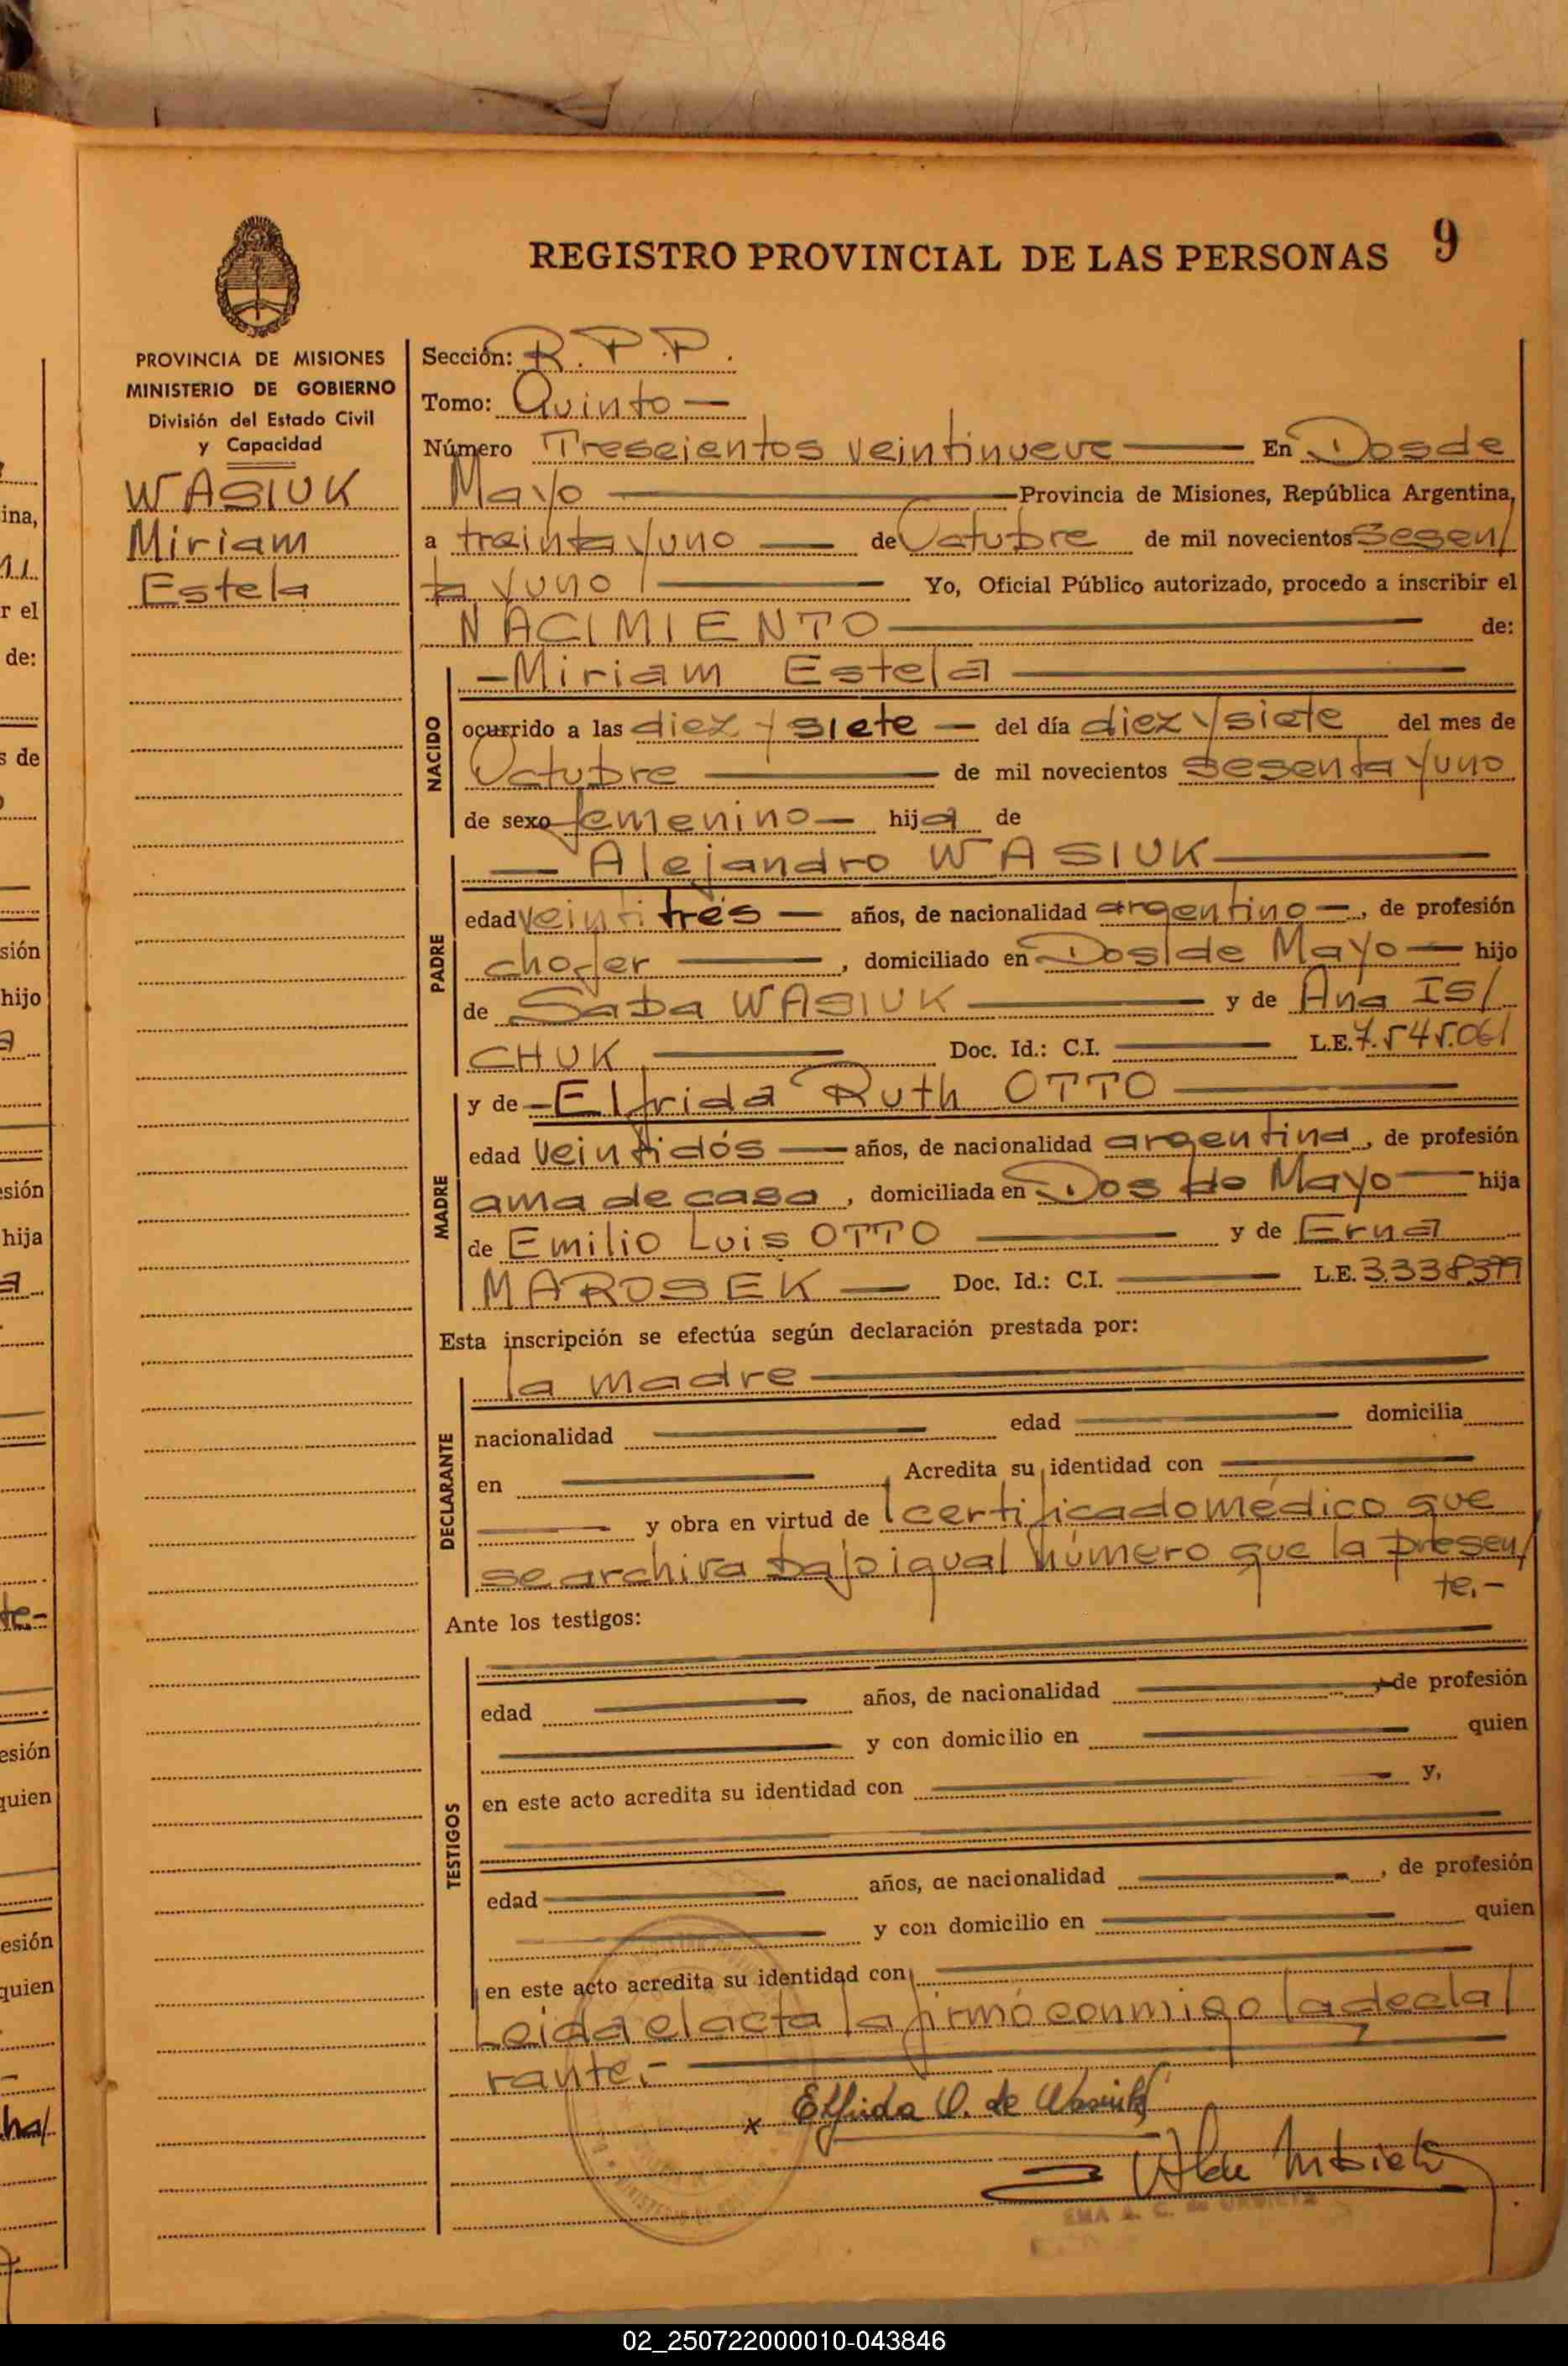 REGISTRO PROVINCIAL DE LAS PERSONAS 9
PROVINCIA DE MISIONES
MINISTERIO DE GOBIERNO
División del Estado Civil
y Capacidad
WASIUK
Miriam
Estela
Sección: R.P.P.
Tomo: Quinto —
Número Trescientos veintinueve — En Dos de
Mayo — Provincia de Misiones, República Argentina,
a treinta y uno — de Octubre de mil novecientos sesen/
ta y uno — Yo, Oficial Público autorizado, procedo a inscribir el
NACIMIENTO — de:
NACIDO
— Miriam Estela —
ocurrido a las diez y siete — del día diez y siete del mes de
Octubre — de mil novecientos sesenta y uno
de sexo femenino — hija de
PADRE
— Alejandro WASIUK —
edad veintitrés — años, de nacionalidad argentino —, de profesión
chofer —, domiciliado en Dos de Mayo — hijo
de Saba WASIUK — y de Ana IS/
CHUK — Doc. Id.: C.I. — L.E. 7.545.061
MADRE
y de — Elfrida Ruth OTTO —
edad veintidós — años, de nacionalidad argentina, de profesión
ama de casa, domiciliada en Dos de Mayo — hija
de Emilio Luis OTTO — y de Erna
MAROSEK — Doc. Id.: C.I. — L.E. 3.338.379
Esta inscripción se efectúa según declaración prestada por:
DECLARANTE
la madre —
nacionalidad — edad — domicilia
en — Acredita su identidad con —
— y obra en virtud de certificado médico que
se archiva bajo igual número que la presen/
te.-
Ante los testigos:
TESTIGOS
edad — años, de nacionalidad — de profesión
— y con domicilio en — quien
en este acto acredita su identidad con — y,
edad — años, de nacionalidad —, de profesión
— y con domicilio en — quien
en este acto acredita su identidad con —
Leida el acta la firmó conmigo la decla/
rante.- —
x Elfrida O. de Wasiuk
02_250722000010-043846